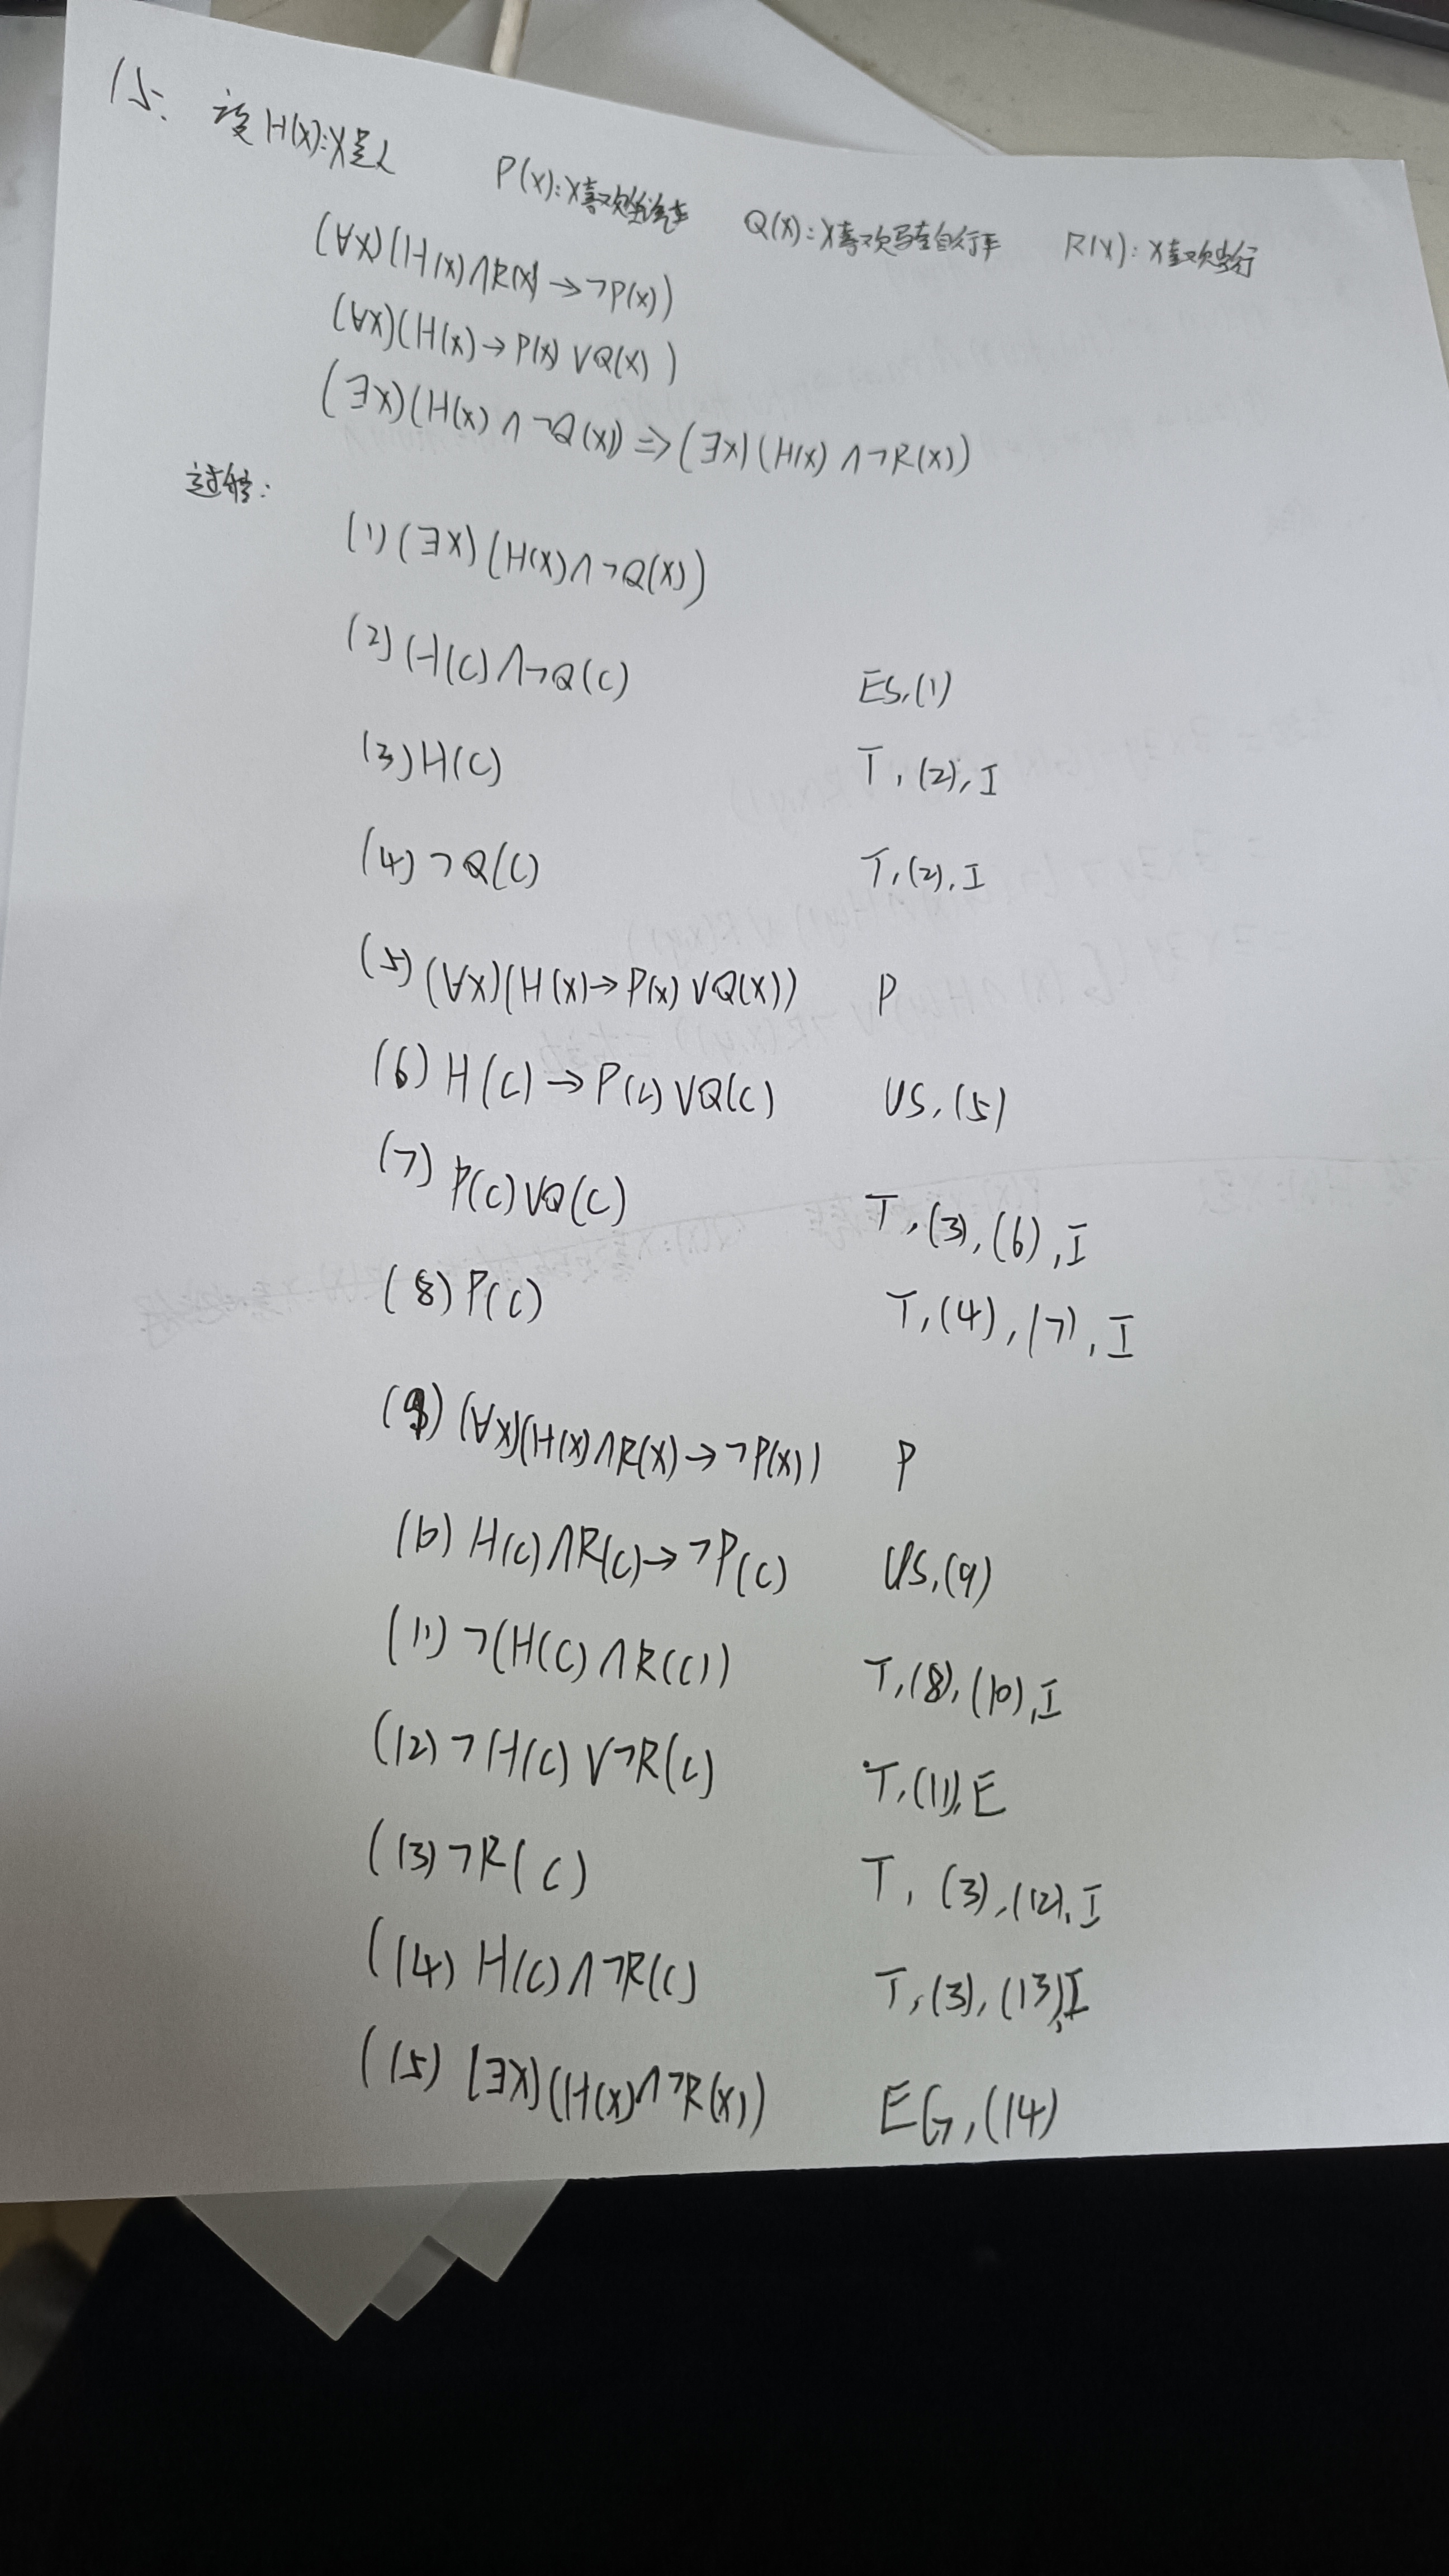 15. 设 H(x):x是人 P(x):x喜欢坐汽车 Q(x):x喜欢骑自行车 R(x):x喜欢步行
(∀x)(H(x)∧R(x)→¬P(x))
(∀x)(H(x)→P(x)∨Q(x))
(∃x)(H(x)∧¬Q(x))⇒(∃x)(H(x)∧¬R(x))
过程:
(1)(∃x)(H(x)∧¬Q(x))
(2)H(c)∧¬Q(c) ES,(1)
(3)H(c) T,(2),I
(4)¬Q(c) T,(2),I
(5)(∀x)(H(x)→P(x)∨Q(x)) P
(6)H(c)→P(c)∨Q(c) US,(5)
(7)P(c)∨Q(c) T,(3),(6),I
(8)P(c) T,(4),(7),I
(9)(∀x)(H(x)∧R(x)→¬P(x)) P
(10)H(c)∧R(c)→¬P(c) US,(9)
(11)¬(H(c)∧R(c)) T,(8),(10),I
(12)¬H(c)∨¬R(c) T,(11),E
(13)¬R(c) T,(3),(12),I
(14)H(c)∧¬R(c) T,(3),(13),I
(15)(∃x)(H(x)∧¬R(x)) EG,(14)